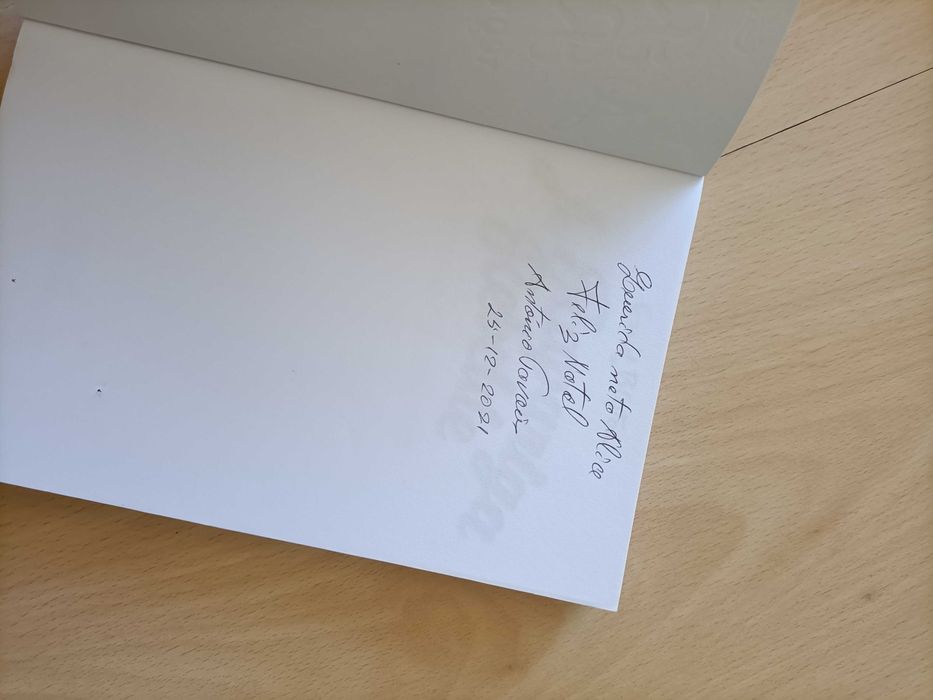 Querida neta Alice
Feliz Natal
António
25-12-2021